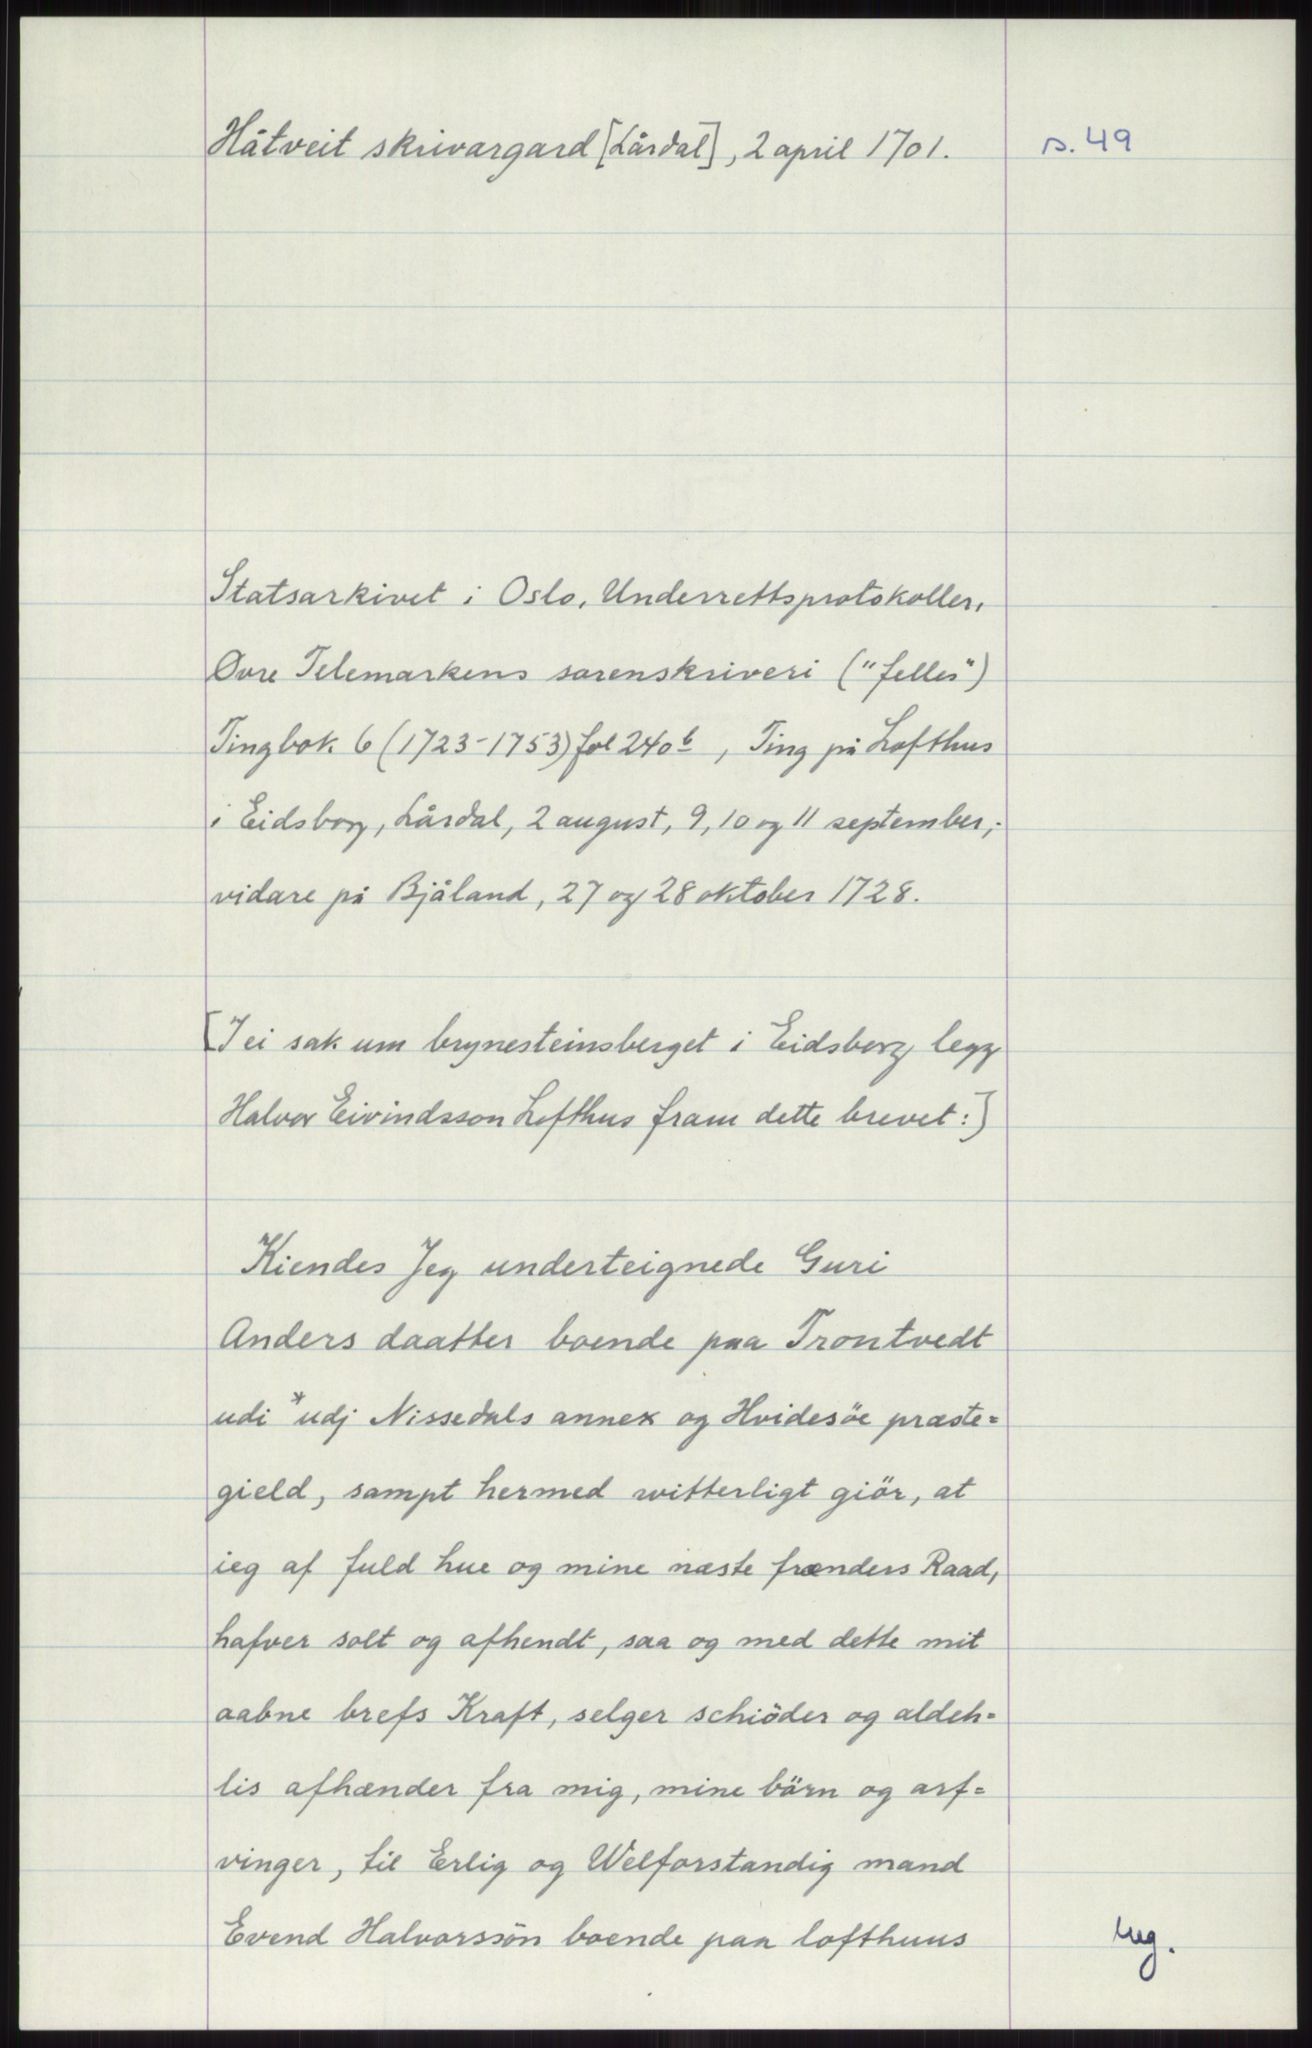 Håtveit skrivargard [Lårdal], 2 april 1701.
s. 49
Statsarkivet i Oslo, Underrettsprotokoller,
Øvre Telemarkens sorenskriveri ("felles")
Tingbok 6 (1723-1753) fol 240 b, Ting på Lofthus
i Eidsborg, Lårdal, 2 august, 9, 10 og 11 september,
vidare på Bjåland, 27 og 28 oktober 1728.
[I ei sak um brynesteinsberget i Eidsborg legg
Halvor Eivindsson Lofthus fram dette brevet:]
Kiendes Jeg underteignede Guri
Anders daatter boende paa Trontvedt
udi *udj Nissedals annex og Hvidesöe præste=
gield, sampt hermed witterligt giör, at
ieg af fuld hue og mine næste frænders Raad,
hafver solt og afhendt, saa og med dette mit
aabne brefs Kraft, selger schiöder og aldeh=
lis afhænder fra mig, mine börn og arf=
vinger, til Erlig og Welforstandig mand
Evend Halvorssön boende paa lofthuus